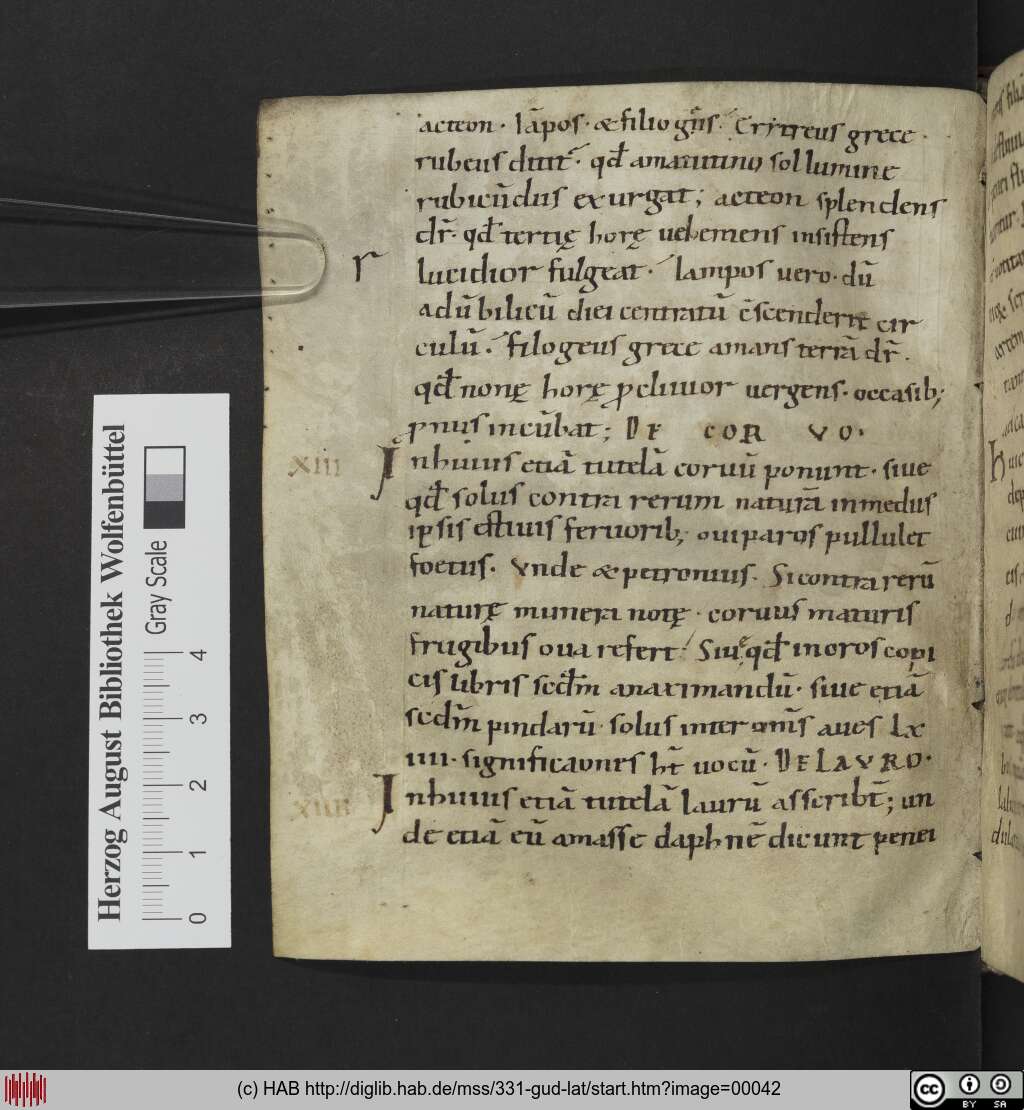 acteon· lãpos· & filiogꝫus· Erytreus grece·
rubeus dicit᷑· qđ amatutino sol lumine
rubicũdus exurgat; acteon splendens
dr̃· qđ tertię horę uehemens insistens
r
lucidior fulgeat· lampos uero· dũ
adũbilicũ diei centratũ c̃scenderit cir
culũ· filogeus grece amans terrã dr̃·
qđ nonę horę ꝓcliuior uergens· occasib;
pnus incũbat; DE CORVO·
XIII
Inhuius etiã tutelã coruũ ponunt· siue
qđ solus contra rerum naturã inmedus
ipsis estiuis feruorib; ouiparos pullulet
foetus· Vnde & petronius· Sicontra rerũ
naturę munera notę· coruus maturis
frugibus oua refert· Siue qđ inoroscopi
cis libris scđm anaximandũ· siue etiã
scđm pindarũ· solus inter om̃s aues Lx
IIII· significationes ht̃ uocũ· DE LAVRO·
XIIII
Inhuius etiã tutelã laurũ asscribt̃; un
de etiã eũ amasse daphnẽ dicunt penei
Herzog August Bibliothek Wolfenbüttel
Gray Scale
0 1 2 3 4
(c) HAB http://diglib.hab.de/mss/331-gud-lat/start.htm?image=00042
cc BY SA